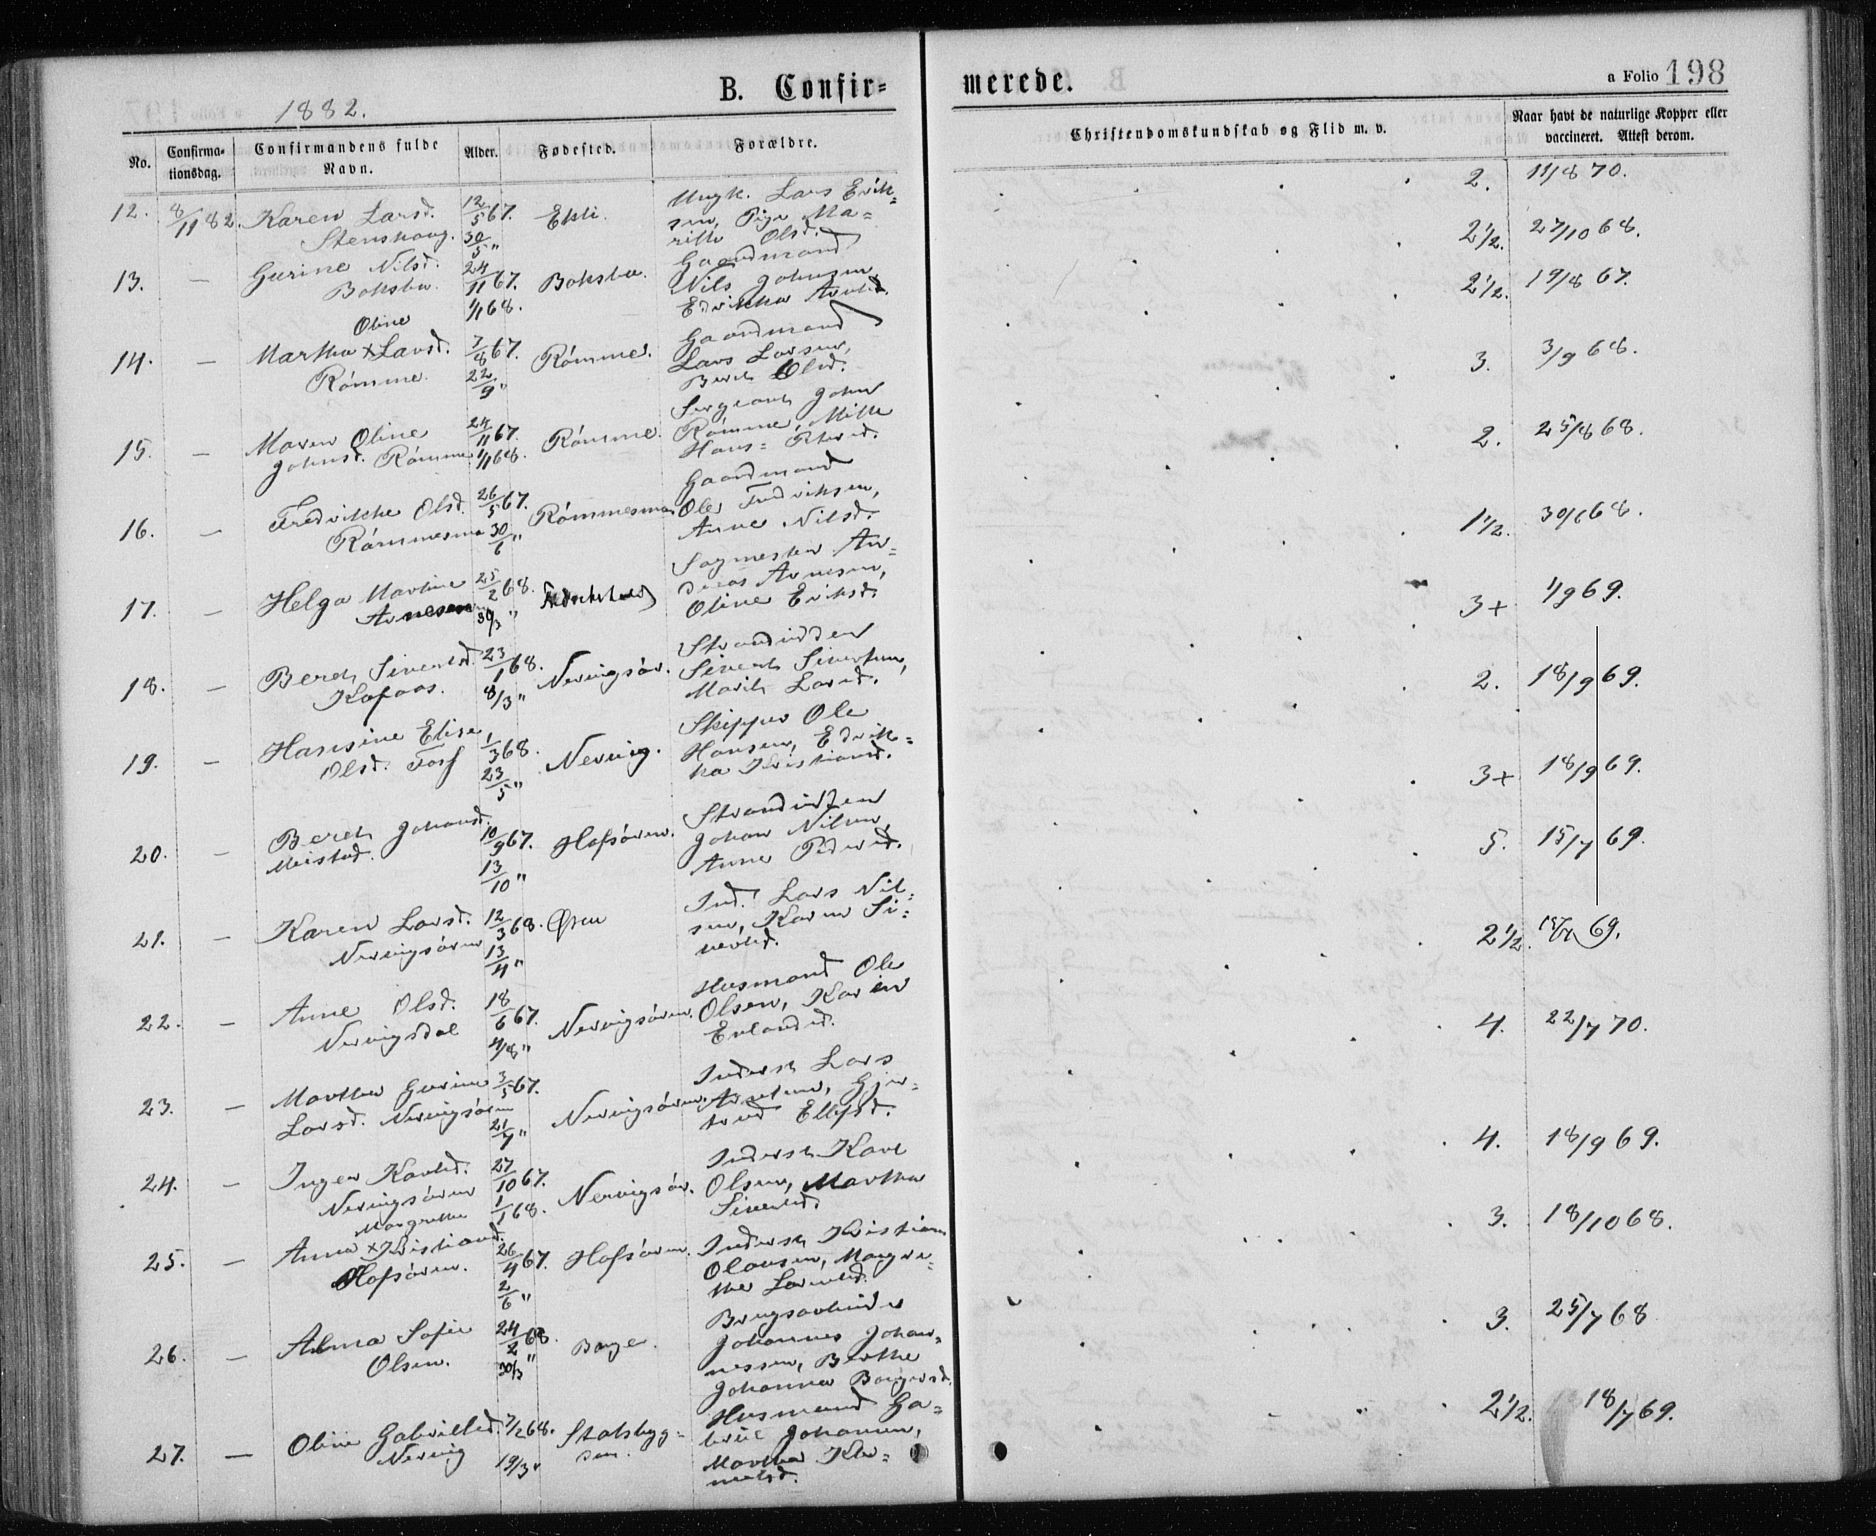 B. Confir=
merede.
a Folio 198
1882.
No.
Confirma-
tionsdag.
Confirmandens fulde
Navn.
Alder.
Fødested.
Forældre.
Christendomskundskab og Flid m. v.
Naar havt de naturlige Kopper eller
vaccineret. Attest derom.
12. 8/11 82. Karen Larsd. 12/5 67. Ungk. Lars Erik=
sen, Pige Ma=
Olsd. 30/5 " 2. 11/8 70.
13. — Gurine Nilsd. 24/11 67. Gaardmand
Nils Johnsen
1/1 68. 2 1/2. 27/10 68.
Oline
14. — Martha x Larsd. 7/8 67. Rømme. Gaardmand
Rømme. 22/9 " Lars Larsen,
Bereth Olsd. 2 1/2. 19/8 67.
15. — Maren Oline 24/11 67. Rømme. Sergeant John
Johnsd. Rømme 1/1 68. Rømme,
3. 3/9 68.
16. — Fredrikke Olsd. 26/5 67. Rømmesmo Gaardmand
Rømmesmo 30/6 " Ole Fredriksen,
Anne Nilsd. 2. 25/8 68.
17. — Helga Martine 25/2 68. Sagmester An=
Arnesen 30/3 " dreas Arnesen,
Oline Eriksd. 1 1/2. 30/6 68.
18. — Bereth Sivertsd. 23/1 68. Nervigsør. Strandsidder
8/3 " Sivert Sivertsen,
Marith Larsd. 3+ 1/9 69.
19. — Hansine Elise 1/3 68. Nervig. Skipper Ole
Olsd. 23/5 " Hansen, Edrik=
ka Kristiansd. 2. 18/9 69.
20. — Bereth Johansd. 10/9 67. Hofsøren. Strandsidder
Meistad. 13/10 " Johan Nilsen,
Anne Pedersd. 3+ 18/9 69.
21. — Karen Larsd. 12/3 68. Øren Ind. Lars Nil=
Nervigsøren 13/4 " sen, Karen Si=
vertsd. 5. 15/7 69.
22. — Anne Olsd. 18/6 67. Nervigsøren. Husmand Ole
Nervigsdal 4/8 " Olsen, Karen
Erlandsd. 2 1/2. 69.
23. — Martha Gurine 3/5 67. Nervigsøren. Inderst Lars
Larsd. Nervigsøren 21/7 " Arntsen, Gjer=
trud Ellefsd. 4. 22/7 70.
24. — Inger Karlsd. 27/10 67. Nervigsør. Inderst Karl
Nervigsøren 1/1 68. Olsen, Martha
Sivertsd. 4. 18/9 69.
Margrethe
25. — Anna x Kristiansd. 26/4 67. Hofsøren. Inderst Kristian
Hofsøren. 2/6 " Olausen, Margre=
the Larentsd. 3. 18/10 68.
26. — Alma Sofie 24/2 68. Borge. Brugsarbeider
Olsen. 30/3 " Johannes Johan=
nessen, Berthe
Johanna Borgersd. 3. 25/7 68
27. — Oline Gabrielsd. 7/2 68. Stalsbyg= Husmand Ga=
Nervig 19/3 " briel Johansen,
Martha Kle=
metsd. 2 1/2. 18/7 69.